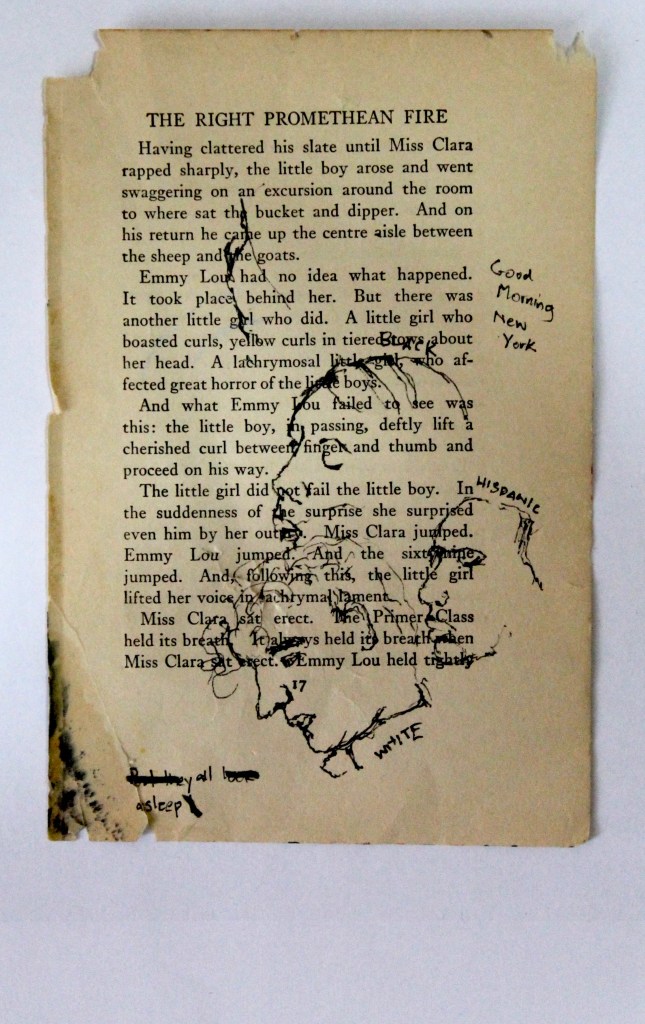 THE RIGHT PROMETHEAN FIRE
Having clattered his slate until Miss Clara
rapped sharply, the little boy arose and went
swaggering on an excursion around the room
to where sat the bucket and dipper. And on
his return he came up the centre aisle between
the sheep and the goats.
Emmy Lou had no idea what happened.
It took place behind her. But there was
another little girl who did. A little girl who
boasted curls, yellow curls in tiered rows about
her head. A lachrymosal little girl, who af-
fected great horror of the little boys.
And what Emmy Lou failed to see was
this: the little boy, in passing, deftly lift a
cherished curl between finger and thumb and
proceed on his way.
The little girl did not fail the little boy. In
the suddenness of the surprise she surprised
even him by her outcry. Miss Clara jumped.
Emmy Lou jumped. And the sixty-nine
jumped. And, following this, the little girl
lifted her voice in lachrymal lament.
Miss Clara sat erect. The Primer Class
held its breath. It always held its breath when
Miss Clara sat erect. Emmy Lou held tightly
17
Good
Morning
New
York
BLACK
HISPANIC
WHITE
all
asleep